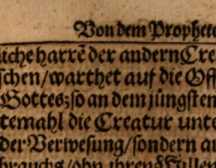 Von dem Prophete
uͤche harrẽ der andern Cre
schen/warthet auf die Off
Gottes; so an dem juͤngsten
temahl die Creatur unte
der Verwesung/sondern a
brauchs/ohn ihren Wille